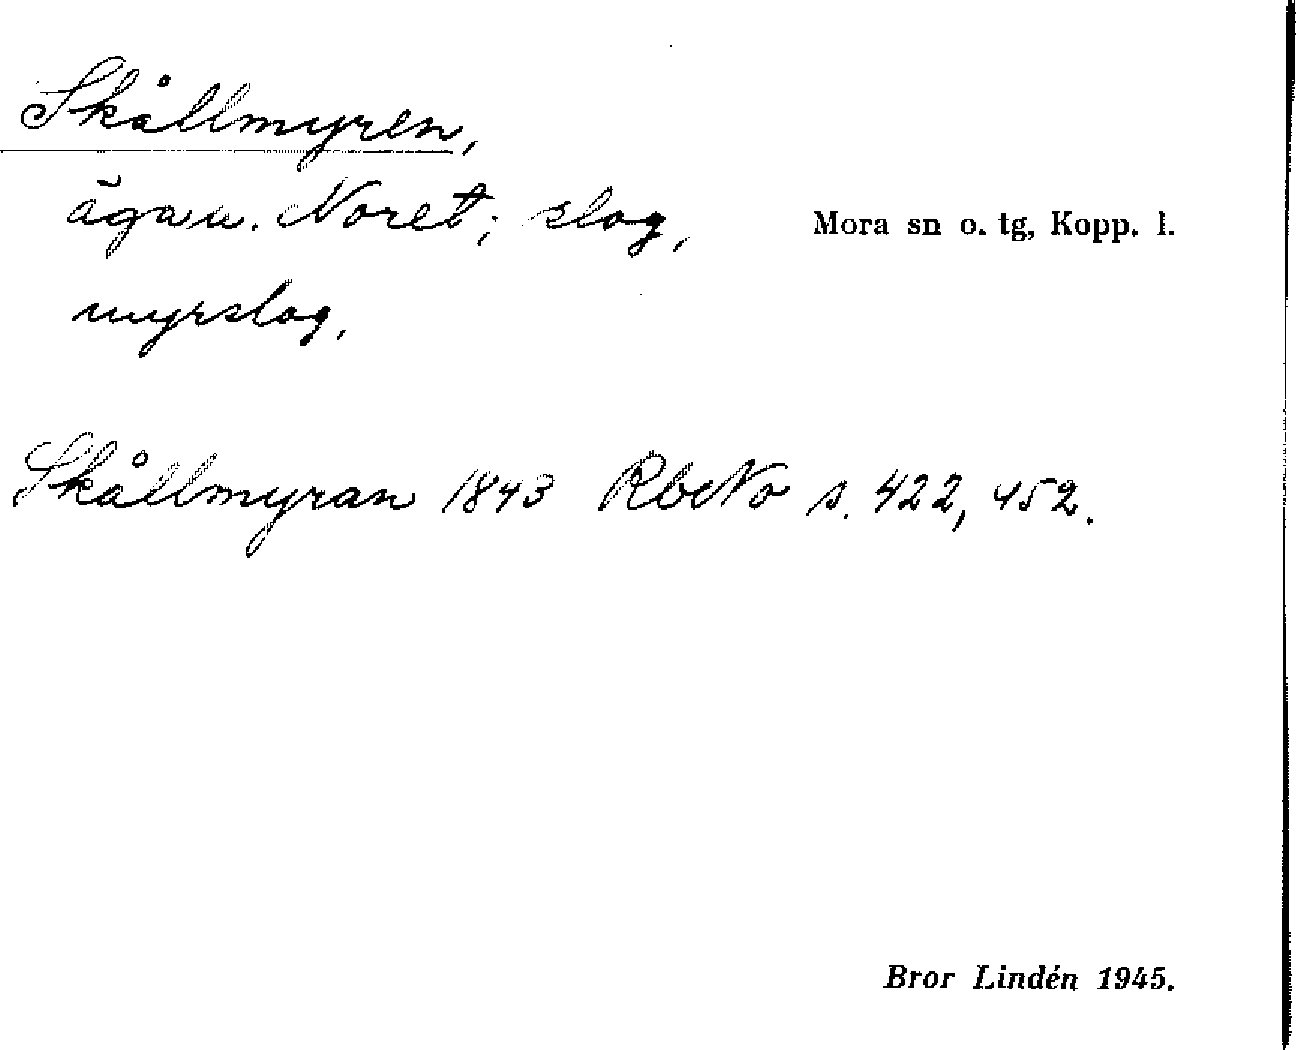 Skållmyren,
ägau. Noret; slog,
Mora sn o. tg, Kopp. l.
myrslog,
Skållmyran 1843 RbcNo s. 422, 452.
Bror Lindén 1945.